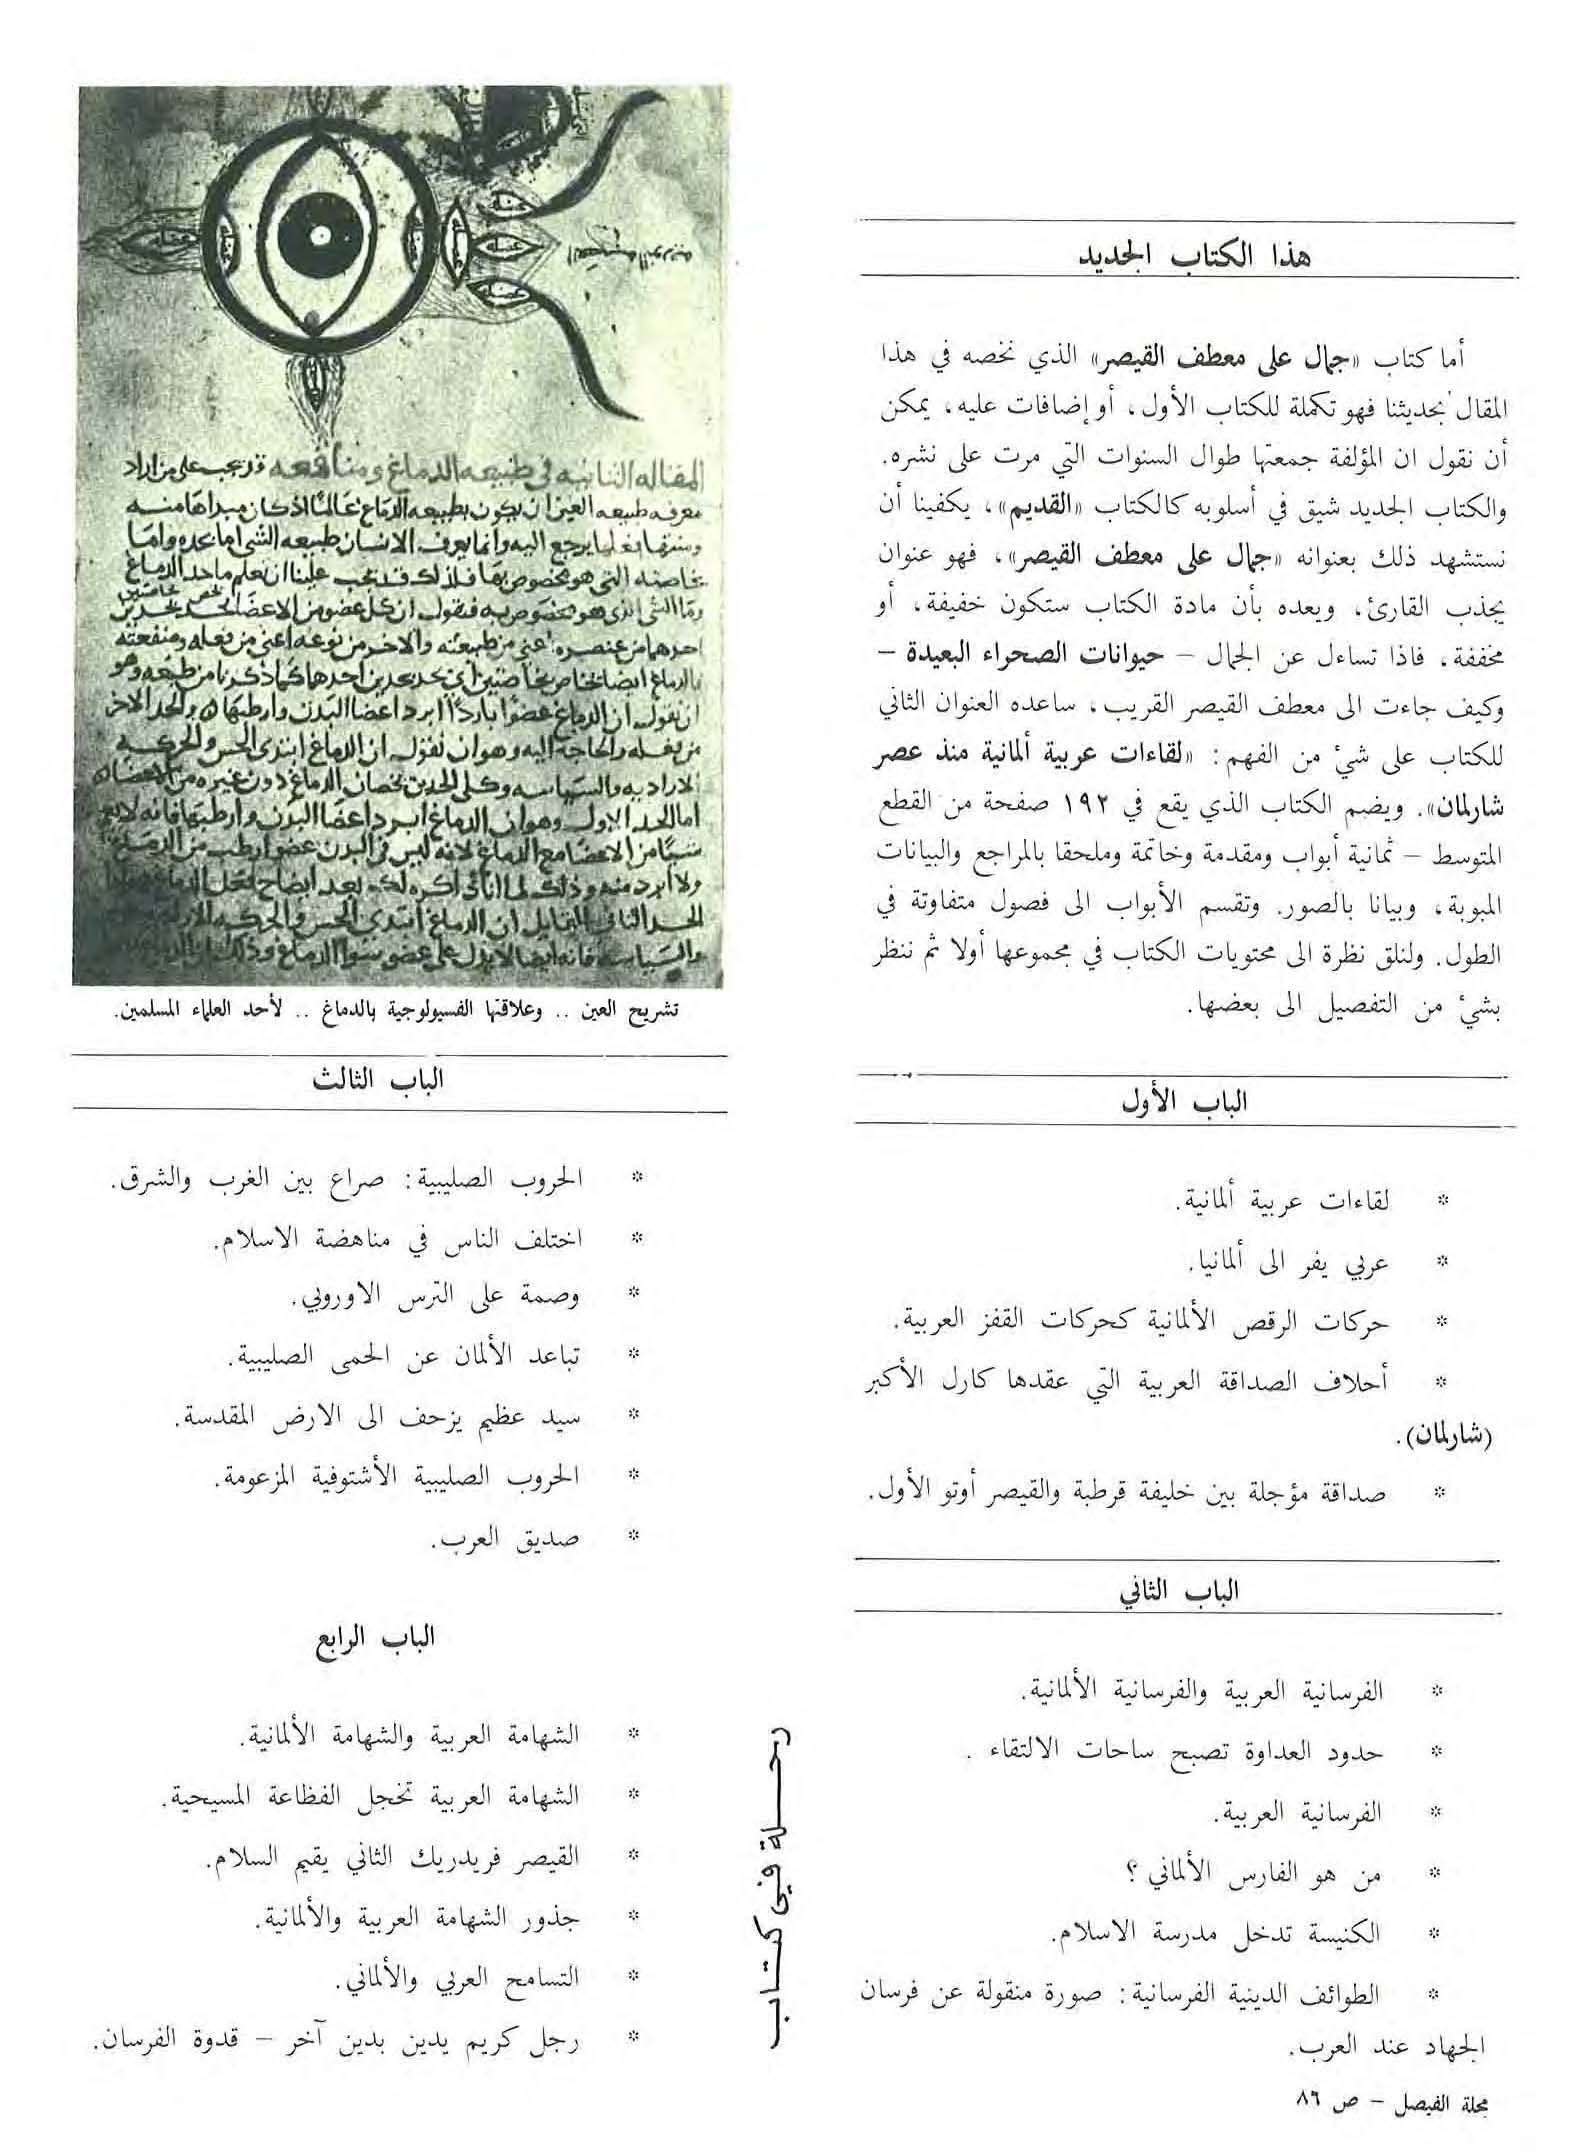 هذا الكتاب الجديد
أما كتاب «جمال على معطف القيصر» الذي نخصه في هذا
المقال بحديثنا فهو تكملة للكتاب الأول، أو إضافات عليه، يمكن
أن نقول ان المؤلفة جمعتها طوال السنوات التي مرت على نشره.
والكتاب الجديد شيق في أسلوبه كالكتاب «القديم»، يكفينا أن
نستشهد ذلك بعنوانه «جمال على معطف القيصر»، فهو عنوان
يجذب القارئ، ويعده بأن مادة الكتاب ستكون خفيفة، أو
مخففة، فاذا تساءل عن الجمال - حيوانات الصحراء البعيدة -
وكيف جاءت الى معطف القيصر القريب، ساعده العنوان الثاني
للكتاب على شئ من الفهم: «لقاءات عربية ألمانية منذ عصر
شارلمان». ويضم الكتاب الذي يقع في ١٩٢ صفحة من القطع
المتوسط - ثمانية أبواب ومقدمة وخاتمة وملحقا بالمراجع والبيانات
المبوبة، وبيانا بالصور. وتقسم الأبواب الى فصول متفاوتة في
الطول. ولنلق نظرة الى محتويات الكتاب في مجموعها أولا ثم ننظر
بشئ من التفصيل الى بعضها.
الباب الأول
* لقاءات عربية ألمانية.
* عربي يفر الى ألمانيا.
* حركات الرقص الألمانية كحركات القفز العربية.
* أحلاف الصداقة العربية التي عقدها كارل الأكبر
(شارلمان).
* صداقة مؤجلة بين خليفة قرطبة والقيصر أوتو الأول.
الباب الثاني
* الفرسانية العربية والفرسانية الألمانية.
* حدود العداوة تصبح ساحات الالتقاء .
* الفرسانية العربية.
* من هو الفارس الألماني ؟
* الكنيسة تدخل مدرسة الاسلام.
* الطوائف الدينية الفرسانية: صورة منقولة عن فرسان
الجهاد عند العرب.
مجلة الفيصل - ص ٨٦
رحلة في كتاب
عضله
عضله
عضله
عضله
المقاله الثانيه في طبيعه الدماغ ومنافعه قد يجب على من اراد
معرفه طبيعه العين ان يكون بطبيعه الدماغ عالمًا اذ كان مبداها منه
تشريح العين .. وعلاقتها الفسيولوجية بالدماغ .. لأحد العلماء المسلمين.
الباب الثالث
* الحروب الصليبية: صراع بين الغرب والشرق.
* اختلف الناس في مناهضة الاسلام.
* وصمة على الترس الاوروبي.
* تباعد الألمان عن الحمى الصليبية.
* سيد عظيم يزحف الى الارض المقدسة.
* الحروب الصليبية الأشتوفية المزعومة.
* صديق العرب.
الباب الرابع
* الشهامة العربية والشهامة الألمانية.
* الشهامة العربية تخجل الفظاعة المسيحية.
* القيصر فريدريك الثاني يقيم السلام.
* جذور الشهامة العربية والألمانية.
* التسامح العربي والألماني.
* رجل كريم يدين بدين آخر - قدوة الفرسان.